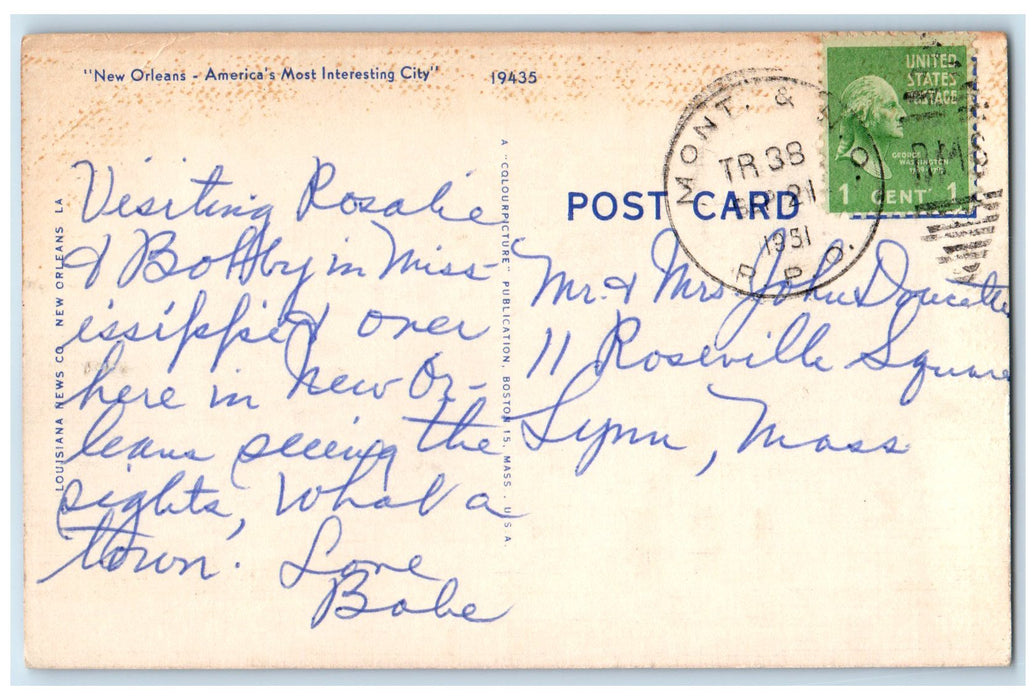 "New Orleans - America's Most Interesting City" 19435
UNITED
STATES
POSTAGE
GEORGE
WASHINGTON
1 CENT 1
MONT. &
TR 38
21
1951
R. P. O.
POST CARD
LOUISIANA NEWS CO. NEW ORLEANS LA
A "COLOURPICTURE" PUBLICATION, BOSTON 15, MASS., U.S.A.
Visiting Rosalie
& Bobby in Miss-
issippi & over
here in New Or-
leans seeing the
sights, What a
town. Love
Babe
Mr. & Mrs John Doucette
11 Roseville Square
Lynn, Mass